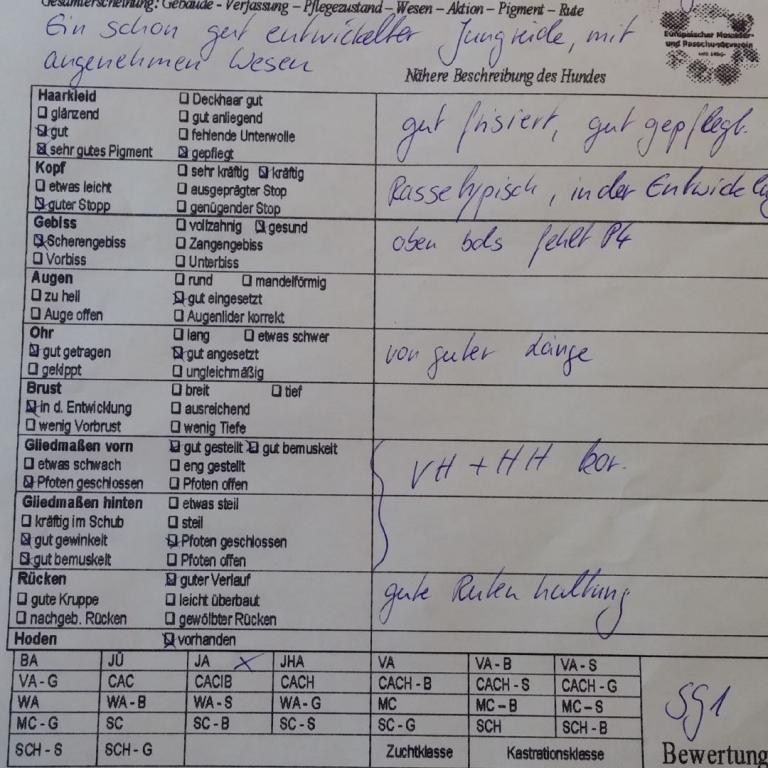 Gesamterscheinung: Gebäude - Verfassung – Pflegezustand – Wesen – Aktion – Pigment – Rute
Ein schon gut entwickelter Jungrüde, mit
angenehmen Wesen
Europäischer
und Rassehundeverein
Nähere Beschreibung des Hundes
Haarkleid ☐ Deckhaar gut
☐ glänzend ☐ gut anliegend
☒ gut ☐ fehlende Unterwolle
☒ sehr gutes Pigment ☒ gepflegt
gut frisiert, gut gepflegt.
Kopf ☐ sehr kräftig ☒ kräftig
☐ etwas leicht ☐ ausgeprägter Stop
☒ guter Stopp ☐ genügender Stop
Rassetypisch, in der
Gebiss ☐ vollzahnig ☒ gesund
☒ Scherengebiss ☐ Zangengebiss
☐ Vorbiss ☐ Unterbiss
oben bds fehlt P4
Augen ☐ rund ☐ mandelförmig
☐ zu hell ☒ gut eingesetzt
☐ Auge offen ☐ Augenlider korrekt
Ohr ☐ lang ☐ etwas schwer
☒ gut getragen ☒ gut angesetzt
☐ gekippt ☐ ungleichmäßig
von guter Länge
Brust ☐ breit ☐ tief
☒ in d. Entwicklung ☐ ausreichend
☐ wenig Vorbrust ☐ wenig Tiefe
Gliedmaßen vorn ☒ gut gestellt ☒ gut bemuskelt
☐ etwas schwach ☐ eng gestellt
☒ Pfoten geschlossen ☐ Pfoten offen
VH + HH kor.
Gliedmaßen hinten ☐ etwas steil
☐ kräftig im Schub ☐ steil
☒ gut gewinkelt ☒ Pfoten geschlossen
☒ gut bemuskelt ☐ Pfoten offen
Rücken ☒ guter Verlauf
☐ gute Kruppe ☐ leicht überbaut
☐ nachgeb. Rücken ☐ gewölbter Rücken
gute Rutenhaltung
Hoden ☒ vorhanden
BA JÜ JA X JHA VA VA - B VA - S
VA - G CAC CACIB CACH CACH - B CACH - S CACH - G
WA WA - B WA - S WA - G MC MC – B MC – S
MC - G SC SC - B SC - S SC - G SCH SCH - B
SCH - S SCH - G Zuchtklasse Kastrationsklasse
SG1
Bewertung